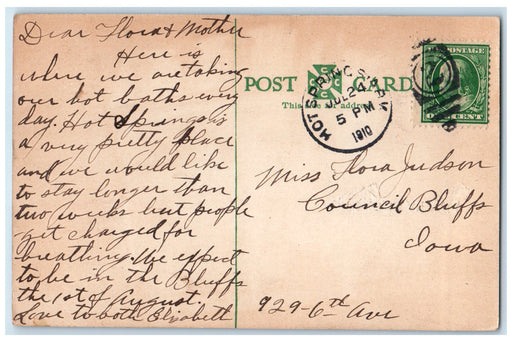 Dear Flora & Mother
Here is
where we are taking
our hot baths every
day. Hot Springs is
a very pretty place
and we would like
to stay longer than
two weeks but people
get charged for
breathing. We expect
to be in the Bluffs
the 1st of August.
Love to both Elizabeth
POST CARD
This
address
HOT SPRINGS
JUL 24
5 PM
1910
POSTAGE
ONE CENT
Miss Flora Judson
Council Bluffs
Iowa
929-6th Ave